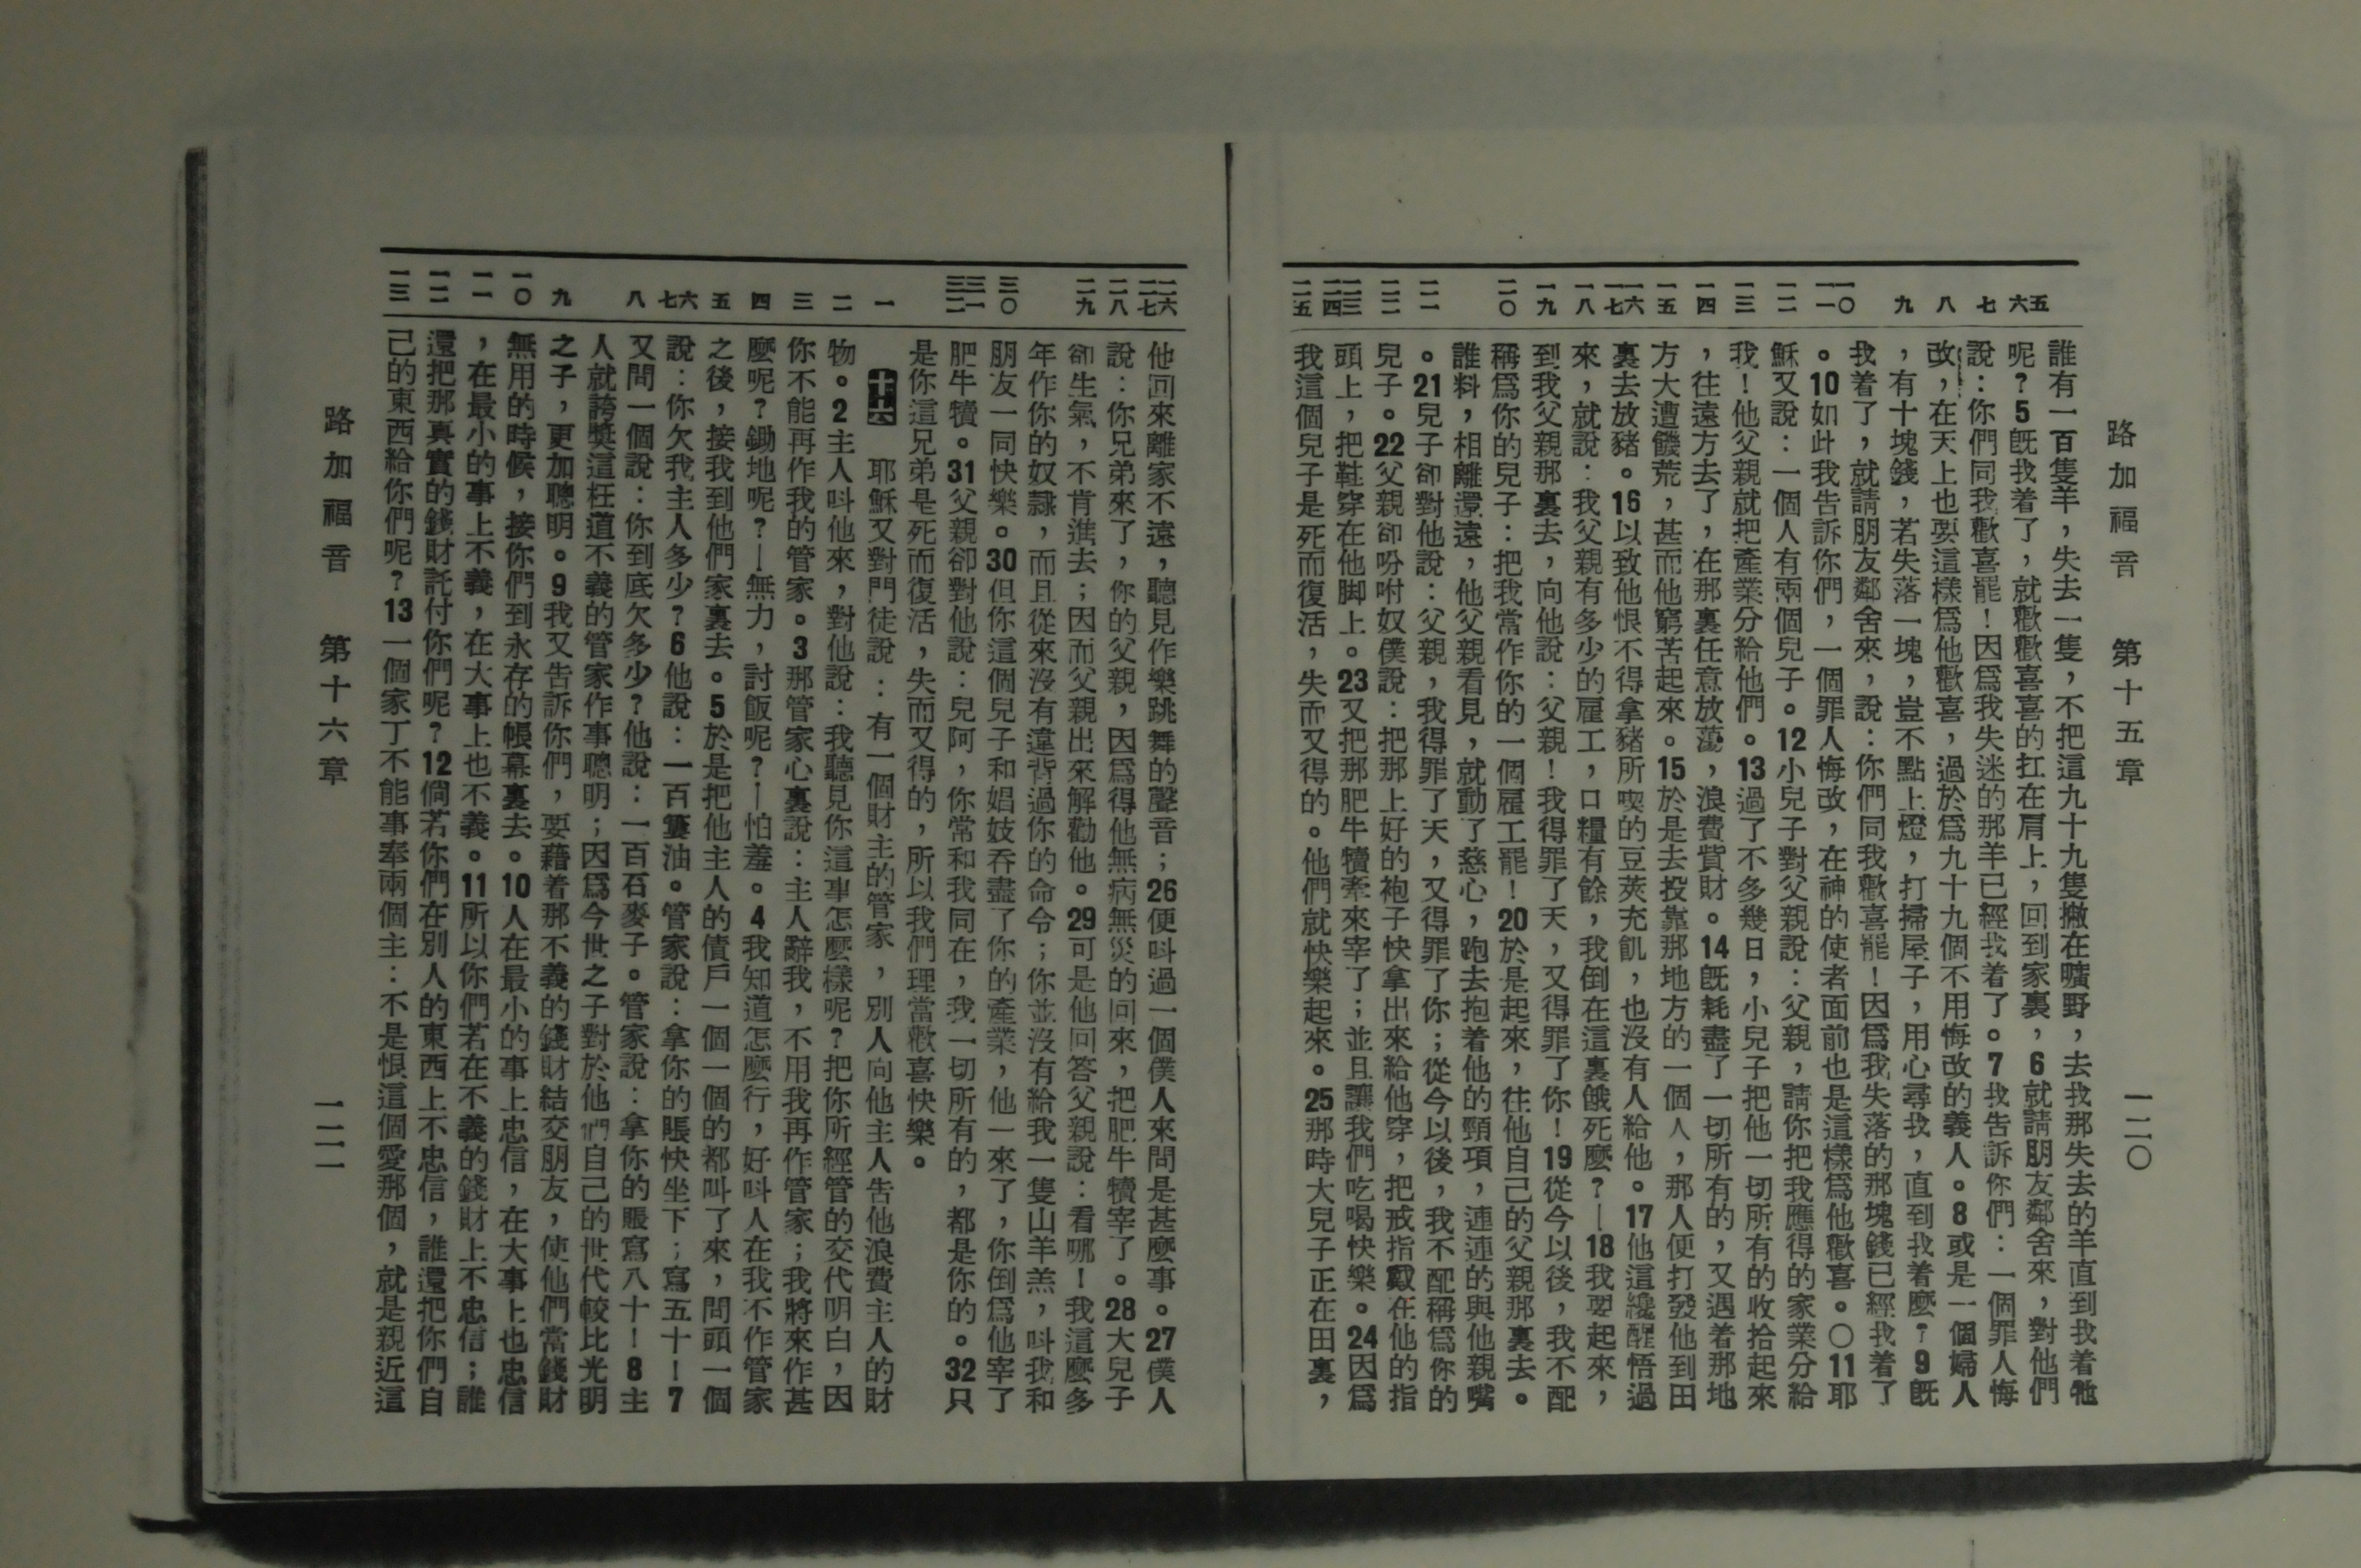 路加福音　第十五章　一二〇
五
六
七
八
九
一〇
一一
一二
一三
一四
一五
一六
一七
一八
一九
二〇
二一
二二
二三
二四
二五
誰有一百隻羊，失去一隻，不把這九十九隻撇在曠野，去找那失去的羊直到找着牠
呢？5既找着了，就歡歡喜喜的扛在肩上，回到家裏，6就請朋友鄰舍來，對他們
說：你們同我歡喜罷！因爲我失迷的那羊已經找着了。7我告訴你們：一個罪人悔
改，在天上也要這樣爲他歡喜，過於爲九十九個不用悔改的義人。8或是一個婦人
，有十塊錢，若失落一塊，豈不點上燈，打掃屋子，用心尋找，直到找着麼？9既
找着了，就請朋友鄰舍來，說：你們同我歡喜罷！因爲我失落的那塊錢已經找着了
。10如此我告訴你們，一個罪人悔改，在神的使者面前也是這樣爲他歡喜。〇11耶
穌又說：一個人有兩個兒子。12小兒子對父親說：父親，請你把我應得的家業分給
我！他父親就把產業分給他們。13過了不多幾日，小兒子把他一切所有的收拾起來
，往遠方去了，在那裏任意放蕩，浪費貲財。14既耗盡了一切所有的，又遇着那地
方大遭饑荒，甚而他窮苦起來。15於是去投靠那地方的一個人，那人便打發他到田
裏去放豬。16以致他恨不得拿豬所喫的豆莢充飢，也沒有人給他。17他這纔醒悟過
來，就說：我父親有多少的雇工，口糧有餘，我倒在這裏餓死麼？—18我要起來，
到我父親那裏去，向他說：父親！我得罪了天，又得罪了你！19從今以後，我不配
稱爲你的兒子：把我當作你的一個雇工罷！20於是起來，往他自己的父親那裏去。
誰料，相離還遠，他父親看見，就動了慈心，跑去抱着他的頸項，連連的與他親嘴
。21兒子卻對他說：父親，我得罪了天，又得罪了你；從今以後，我不配稱爲你的
兒子。22父親卻吩咐奴僕說：把那上好的袍子快拿出來給他穿，把戒指戴在他的指
頭上，把鞋穿在他脚上。23又把那肥牛犢牽來宰了；並且讓我們吃喝快樂。24因爲
我這個兒子是死而復活，失而又得的。他們就快樂起來。25那時大兒子正在田裏，
二六
二七
二八
二九
三〇
三一
三二
一
二
三
四
五
六
七
八
九
一〇
一一
一二
一三
他回來離家不遠，聽見作樂跳舞的聲音；26便叫過一個僕人來問是甚麼事。27僕人
說：你兄弟來了，你的父親，因爲得他無病無災的回來，把肥牛犢宰了。28大兒子
卻生氣，不肯進去；因而父親出來解勸他。29可是他回答父親說：看哪！我這麼多
年作你的奴隸，而且從來沒有違背過你的命令；你並沒有給我一隻山羊羔，叫我和
朋友一同快樂。30但你這個兒子和娼妓吞盡了你的產業，他一來了，你倒爲他宰了
肥牛犢。31父親卻對他說：兒阿，你常和我同在，我一切所有的，都是你的。32只
是你這兄弟是死而復活，失而又得的，所以我們理當歡喜快樂。
十六　耶穌又對門徒說：有一個財主的管家，別人向他主人告他浪費主人的財
物。2主人叫他來，對他說：我聽見你這事怎麼樣呢？把你所經管的交代明白，因
你不能再作我的管家。3那管家心裏說：主人辭我，不用我再作管家；我將來作甚
麼呢？鋤地呢？—無力，討飯呢？—怕羞。4我知道怎麼行，好叫人在我不作管家
之後，接我到他們家裏去。5於是把他主人的債戶一個一個的都叫了來，問頭一個
說：你欠我主人多少？6他說：一百簍油。管家說：拿你的賬快坐下；寫五十！7
又問一個說：你到底欠多少？他說：一百石麥子。管家說：拿你的賬寫八十！8主
人就誇獎這枉道不義的管家作事聰明；因爲今世之子對於他們自己的世代較比光明
之子，更加聰明。9我又告訴你們，要藉着那不義的錢財結交朋友，使他們當錢財
無用的時候，接你們到永存的帳幕裏去。10人在最小的事上忠信，在大事上也忠信
，在最小的事上不義，在大事上也不義。11所以你們若在不義的錢財上不忠信；誰
還把那真實的錢財託付你們呢？12倘若你們在別人的東西上不忠信，誰還把你們自
己的東西給你們呢？13一個家丁不能事奉兩個主：不是恨這個愛那個，就是親近這
路加福音　第十六章　一二一